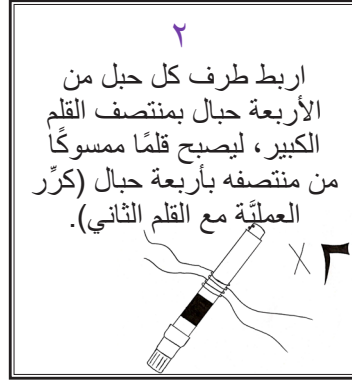 ٢
اربط طرف كل حبل من
الأربعة حبال بمنتصف القلم
الكبير، ليصبح قلمًا ممسوكًا
من منتصفه بأربعة حبال (كرِّر
العمليَّة مع القلم الثاني).
×٢